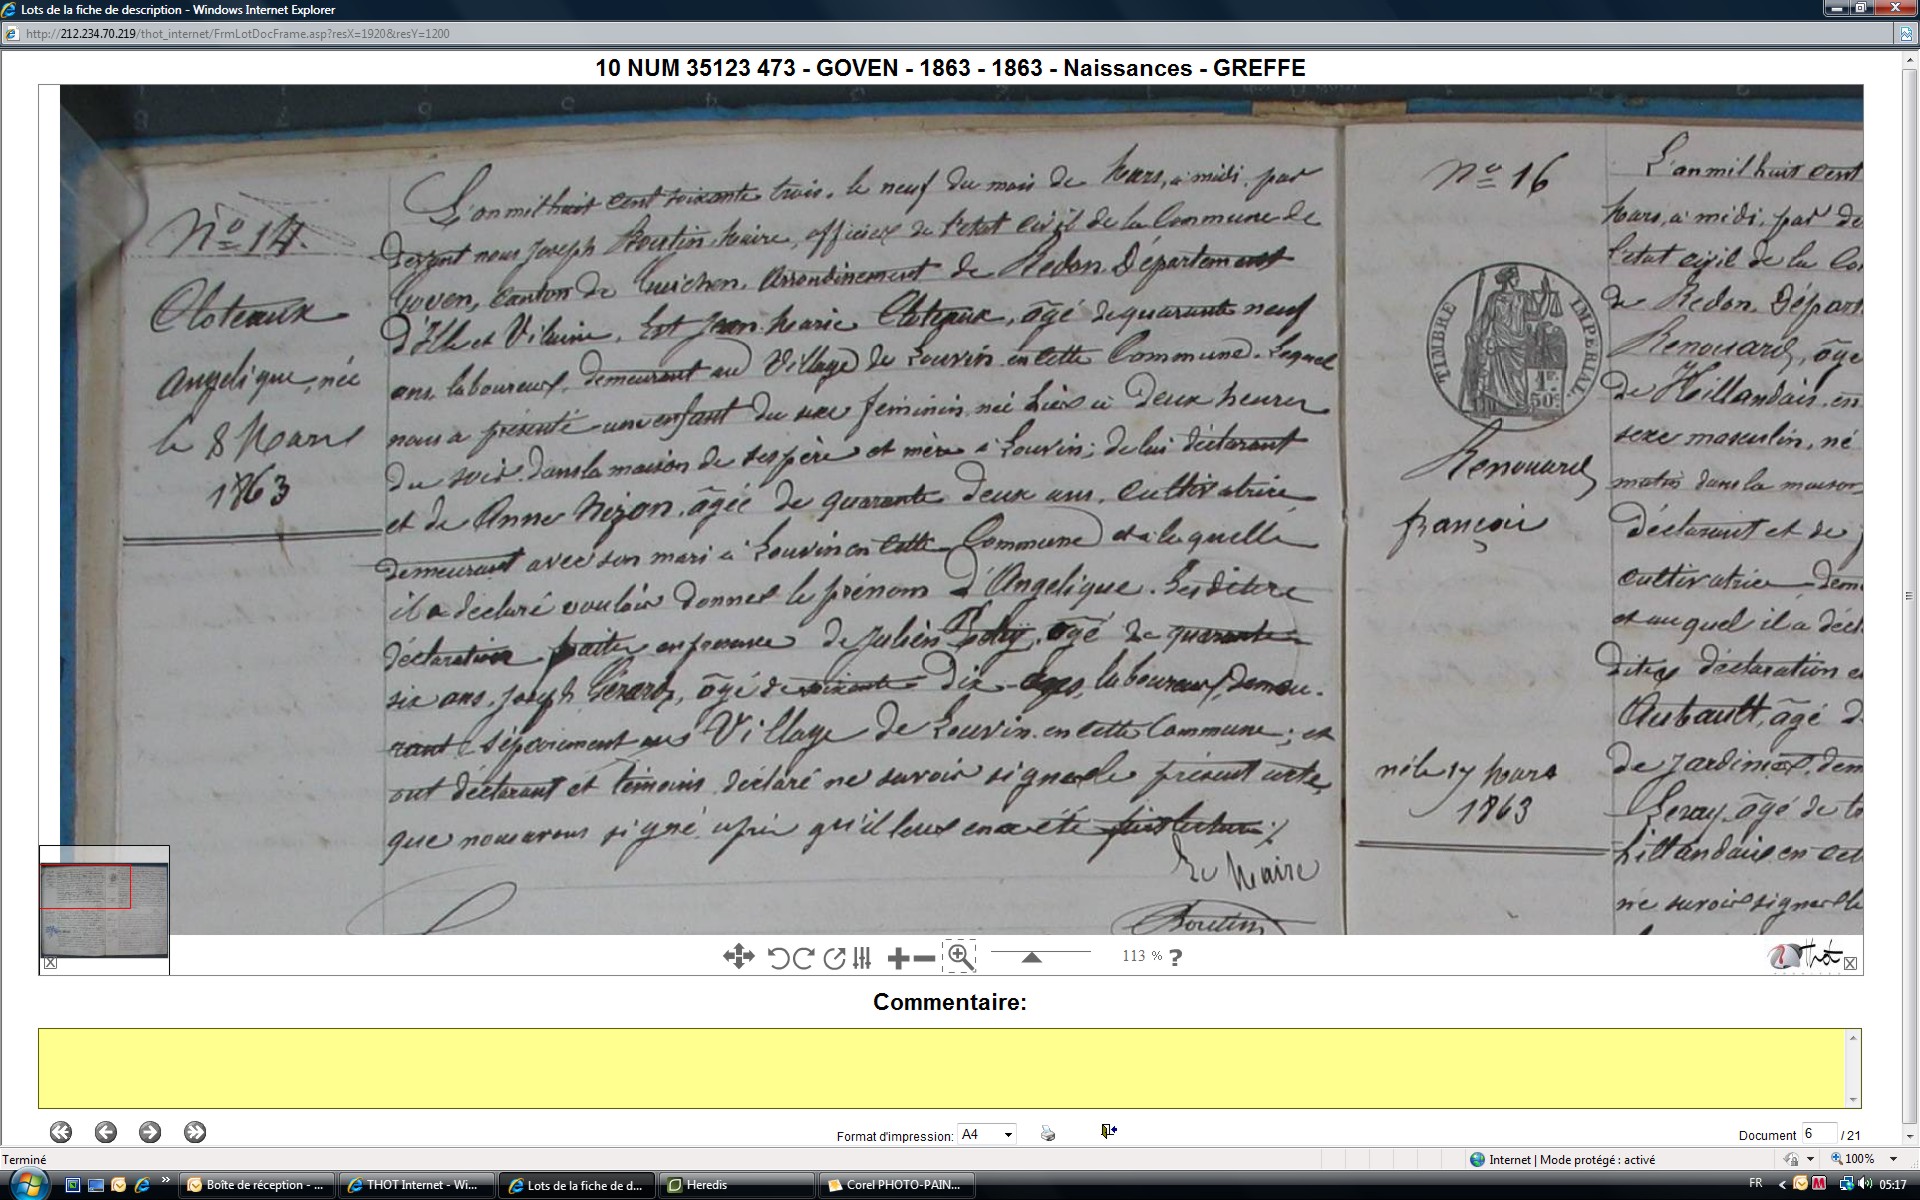 Lots de la fiche de description - Windows Internet Explorer
http://212.234.70.219/thot_internet/FrmLotDocFrame.asp?resX=1920&resY=1200
10 NUM 35123 473 - GOVEN - 1863 - 1863 - Naissances - GREFFE
No 14.
Cloteaux
Angelique, née
le 8 Mars
1863
L'an mil huit cent soixante trois, le neuf du mois de Mars, à midi, par
devant nous Joseph Boutin Maire, officier de l'état civil de la Commune de
Goven, Canton de Guichen, Arrondissement de Redon, Département
d'Ille et Vilaine, Est Jean Marie Cloteaux, âgé de quarante neuf
ans, laboureur, demeurant au Village de Louvin en cette Commune, Lequel
nous a présenté un enfant du sexe féminin né hier à deux heures
du soir dans la maison de ses père et mère à Louvin; de lui déclarant
et de Anne Nizon, âgée de quarante deux ans, cultivatrice
demeurant avec son mari à Louvin en cette Commune et à laquelle
il a déclaré vouloir donner le prénom d'Angelique. Les dites
déclaration faites en présence de Julien âgé de quarante
six ans, Joseph Gérard, âgé de soixante dix laboureurs, demeu-
rant séparément au Village de Louvin en cette Commune; et
ont déclarant et témoins déclaré ne savoir signer le présent acte,
que nous avons signé après qu'il leur en a été fait lecture
Le Maire
Boutin
No 16
TIMBRE IMPÉRIAL
1F. 50c.
Renouard
françois
né le 17 Mars
1863
L'an mil huit cent
Mars, à midi, par de
l'état civil de la Co
de Redon, Départ
Renouard, âgé
de Hillandais, en
sexe masculin, né
matin dans la maison
déclarant et de
cultivatrice dem
et auquel il a décl
dites déclaration e
Aubault, âgé d
de Jardinier, dem
Leray, âgé de
hillandais en cet
ne savoir signer le
113 % ?
Thot
Commentaire:
Format d'impression: A4
Document 6 / 21
Terminé
Internet | Mode protégé : activé
100%
Boîte de réception - ...
THOT Internet - Wi...
Lots de la fiche de d...
Heredis
Corel PHOTO-PAIN...
FR
05:17